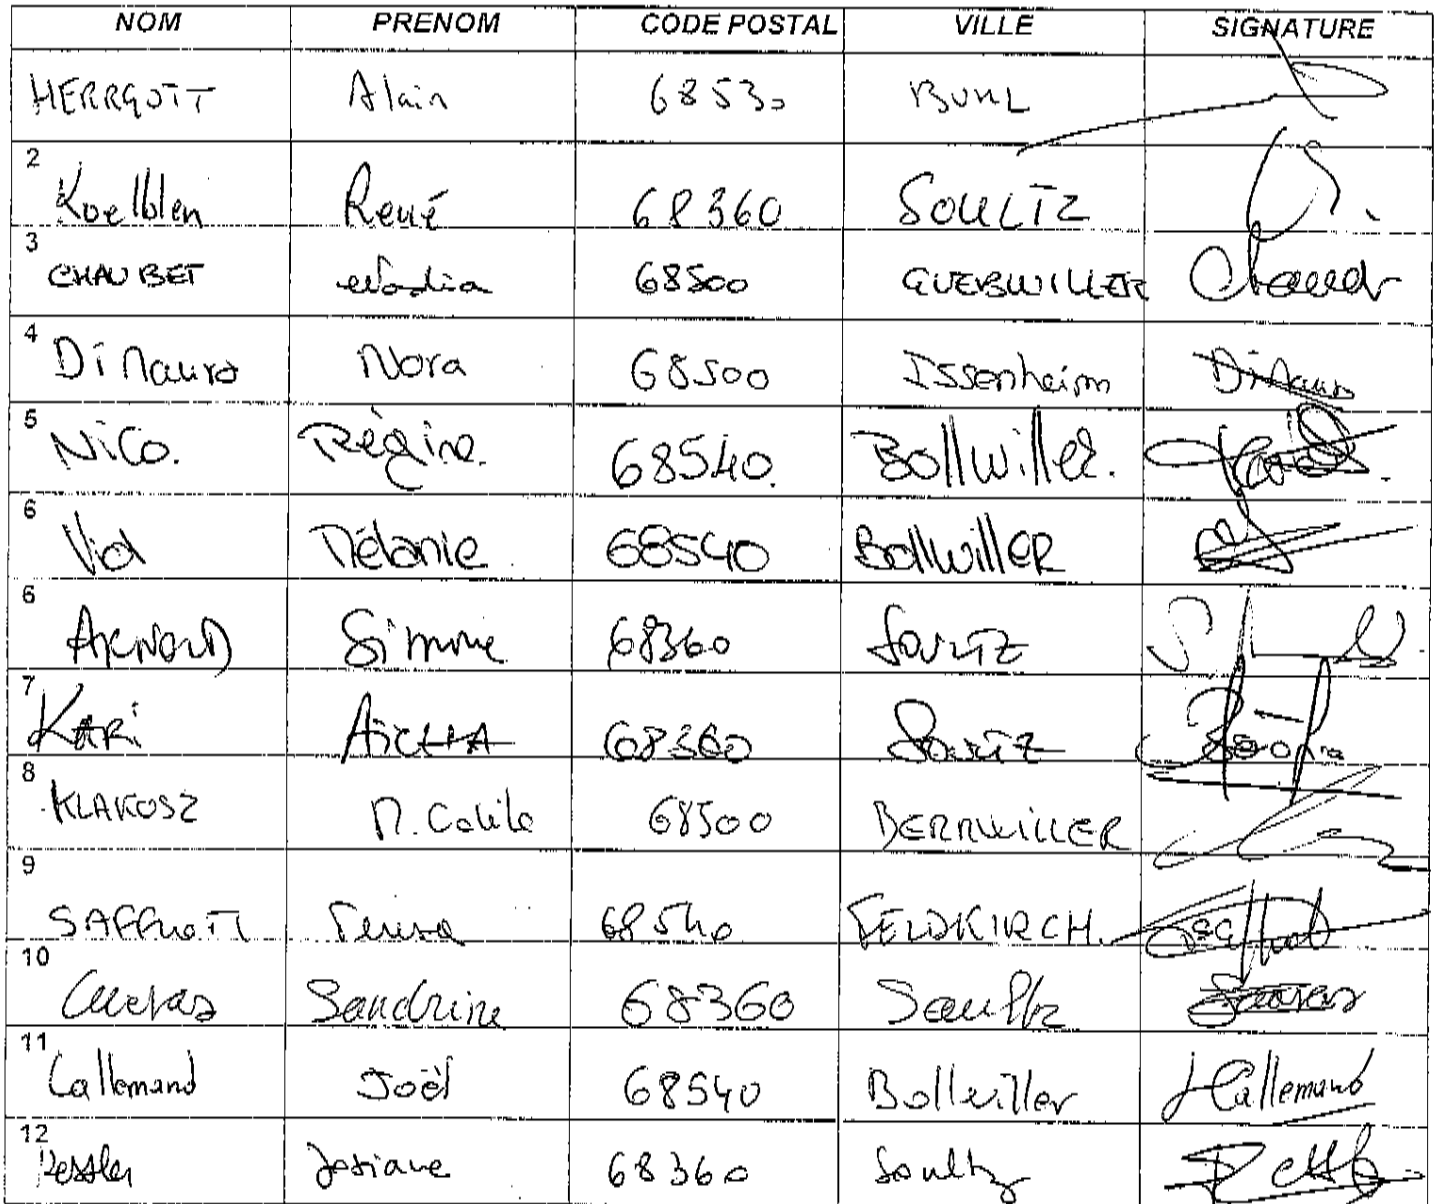 NOM PRENOM CODE POSTAL VILLE SIGNATURE
HERRGOTT Alain 68530 BUHL
2 Koelblen René 68360 SOULTZ
3 CHAUBET Nadia 68500 GUEBWILLER
4 Di Mauro Nora 68500 Issenheim Di Mauro
5 Nico. Régine. 68540. Bollwiller.
6 Viol Mélanie 68540 Bollwiller
6 Arnold Simone 68360 Soultz
7 KARi AïCHA 68360 Soultz
8 KLAKOSZ M. Cécile 68500 BERRWILLER
9 68540 FELDKIRCH.
10 Cuevas Sandrine 68360 Soultz
11 Lallemand Joël 68540 Bollwiller Lallemand
12 Kessler Josiane 68360 Soultz